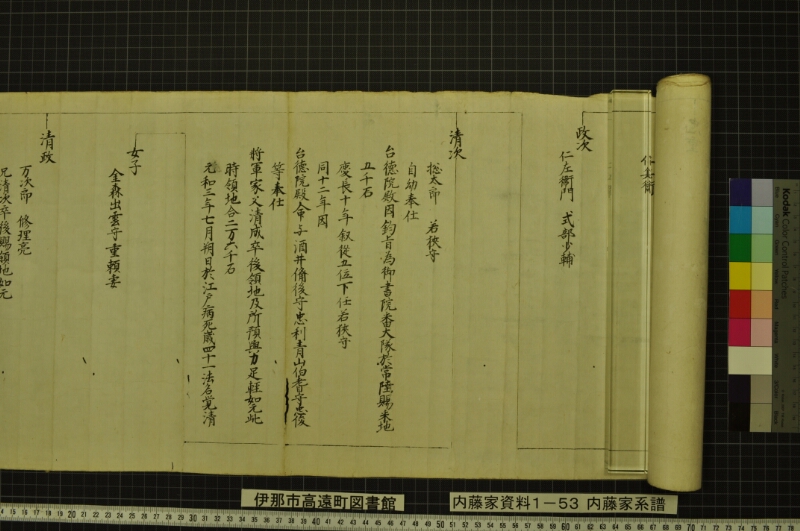 政次
仁左衛門 式部少輔
清次
総太郎 若狭守
自幼奉仕
台徳院殿因鈞旨為御書院番大隊於常陸賜釆地
五千石
慶長十年叙従五位下任若狭守
同十二年因
台徳院殿命与酒井備後守忠利青山伯耆守忠俊
等奉仕
将軍家父清成卒後領地及所預与力足軽如元此
時領地合二万六千石
元和三年七月朔日於江戸病死歳四十一法名覚清
女子
金森出雲守重頼妻
清政
万次郎 修理亮
兄清次卒後賜領地如元
伊那市高遠町図書館
内藤家資料1－53 内藤家系譜
Kodak